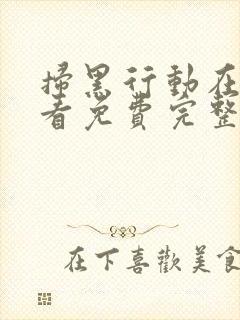 掃黑行動在
看免費完整
在下喜歡美食